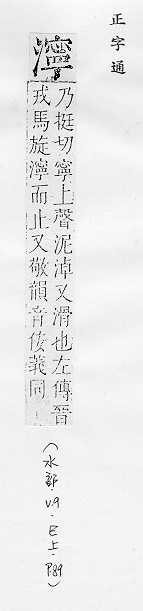 正字通
濘
乃挺切寧上聲泥淖又滑也左傳晉
戎馬旋濘而止又敬韻音佞義同
(水部·V.9·巳上·P.89)